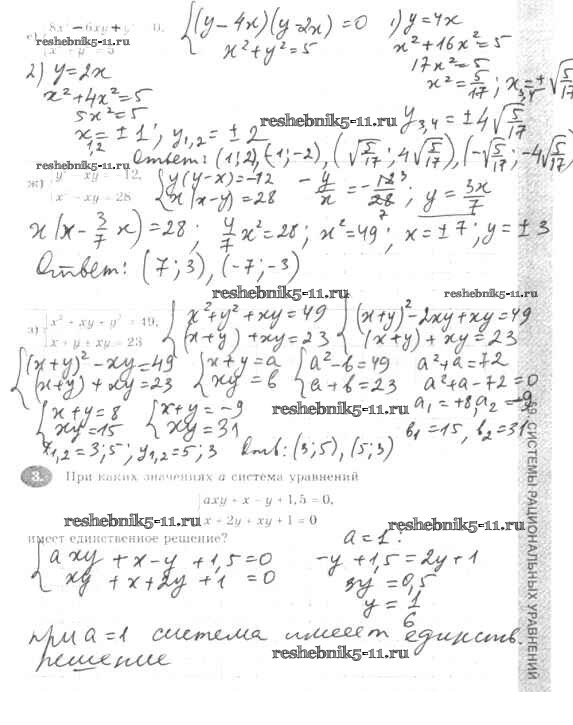 8x² − 6xy + y² 0,
{(y − 4x)(y − 2x) = 0
x² + y² = 5
1) y = 4x
x² + 16x² = 5
17x² = 5
x² = 5/17; x₃,₄ = ±√5/17
y₃,₄ = ±4√5/17
reshebnik5-11.ru
2) y = 2x
x² + 4x² = 5
5x² = 5
x₁,₂ = ±1; y₁,₂ = ±2
reshebnik5-11.ru
Ответ: (1; 2), (-1; -2), (√5/17; 4√5/17), (-√5/17; -4√5/17)
reshebnik5-11.ru
ж) {y² − xy = −12,
x² − xy = 28
{y(y − x) = −12
x(x − y) = 28
− y/x = − 12 3/28 7; y = 3x/7
x(x − 3/7 x) = 28; 4/7 x² = 28; x² = 49; x = ±7; y = ±3
Ответ: (7; 3), (-7; -3)
reshebnik5-11.ru
reshebnik5-11.ru
з) {x² + xy + y² = 49,
x + y + xy = 23
{x² + y² + xy = 49
(x + y) + xy = 23
{(x + y)² − 2xy + xy = 49
(x + y) + xy = 23
{(x + y)² − xy = 49
(x + y) + xy = 23
{x + y = a
xy = b
{a² − b = 49
a + b = 23
a² + a = 72
a² + a − 72 = 0
a₁ = +8, a₂ = −9
b₁ = 15, b₂ = 31
{x + y = 8
xy = 15
{x + y = −9
xy = 31
reshebnik5-11.ru
x₁,₂ = 3; 5; y₁,₂ = 5; 3
Отв: (3; 5), (5; 3)
3. При каких значениях a система уравнений
{axy + x − y + 1,5 = 0,
x + 2y + xy + 1 = 0
reshebnik5-11.ru
reshebnik5-11.ru
имеет единственное решение?
{axy + x − y + 1,5 = 0
xy + x + 2y + 1 = 0
a = 1:
−y + 1,5 = 2y + 1
3y = 0,5
y = 1/6
при a = 1 система имеет единств.
решение
reshebnik5-11.ru
СИСТЕМЫ РАЦИОНАЛЬНЫХ УРАВНЕНИЙ